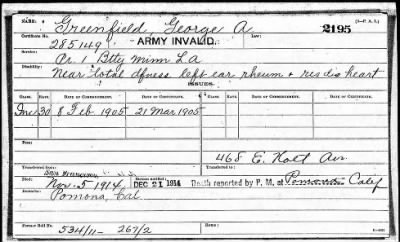 NAME: Greenfield, George A. Law: 2195 (3-P. A. I.)
Certificate No. 285149 ARMY INVALID.
Service: Ar. 1 Btty Minn L A
Disability: Near total dfness left ear rheum & res dis heart
ISSUES.
CLASS. RATE. DATE OF COMMENCEMENT. DATE OF CERTIFICATE. CLASS. RATE. DATE OF COMMENCEMENT. DATE OF CERTIFICATE.
Inc 30 8 Feb 1905 21 Mar 1905
468 E. Holt Ave.
Transferred from Transferred to
Died: Nov. 5 1914, Bureau notified DEC 21 1914 Death reported by P. M. at Pomona Calif
Pomona, Cal.
Former Roll No. 534/11- 267/2